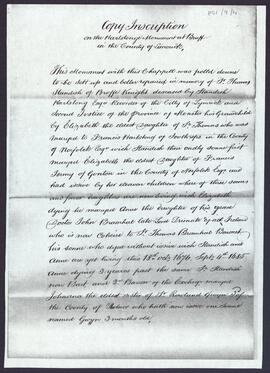 P21/9/4
Copy Inscription
on the Hartstonge Monument at Bruff
in the County of Limerick,
This Monument with this Chappell was pulled downe
to be sett up and better repaired in memory of Sr Thomas
Standish of Bruffe Knight deceased by Standish
Hartstong Esqr Recorder of the Citty of Lymerick and
Second Justice of the Province of his Grandchild
by Elizabeth the eldest Daughter of Sr Thomas who was
marryed to Francis Hartstong of in the County
of Norfolk Esqr wch Standish then only sonne first
marryed Elizabeth the eldest Daughter of Francis
Jermy of Gonton in the County of Norfolk Esqr and
had issue by her eleaven children where of three sonnes
and four daughters are now living wch Elizabeth
dying he marryed Anne the daughter of his
Doctor John Bramhall Late Lord Primate of all Ireland
who is now Coheire to Sr Thomas Bramhall Baronet
his sonne who dyed without issue wch Standish and
Anne are yet living this 18th 1676. Sept 4th 1685
Anne dying 3 years past the same Sr Standish
now Bart and 2nd Baron of the Exchequer marryed
Johanna the eldest sister of Sr Rowland Gwyn
the County of Radnor who hath now issue one sonne
named Gwyn 3 months old.